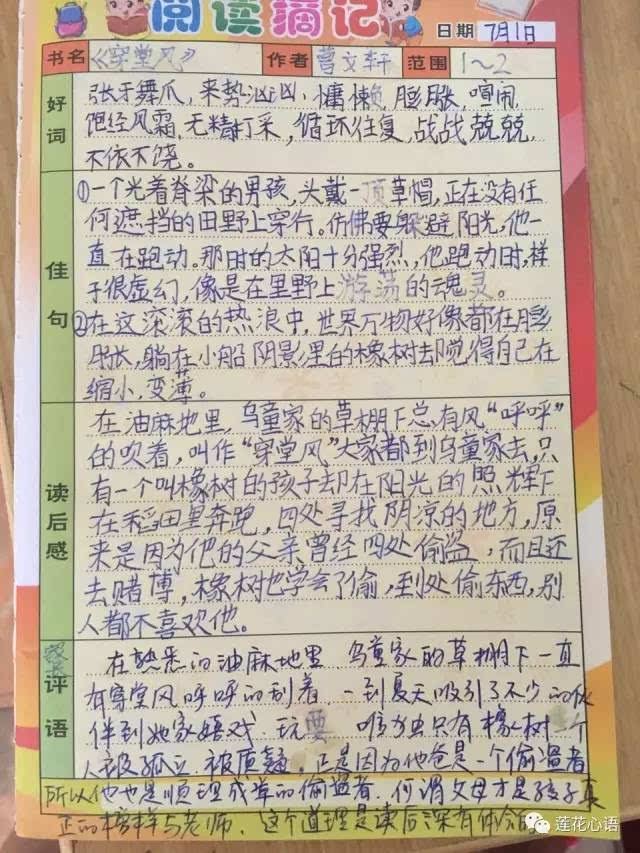 阅读摘记
日期 7月1日
书名 《穿堂风》 作者 曹文轩 范围 1~2
好词
张牙舞爪,来势汹汹,慵懒,膨胀,喧闹,
饱经风霜,无精打采,循环往复,战战兢兢,
不依不饶。
佳句
①一个光着脊梁的男孩,头戴一顶草帽,正在没有任
何遮挡的田野上穿行。仿佛要躲避阳光,他一
直在跑动。那时的太阳十分强烈,他跑动时,样
子很虚幻,像是在里野上游荡的魂灵。
②在这滚滚的热浪中,世界万物好像都在膨
胀,躺在小船阴影里的橡树却觉得自己在
缩小,变薄。
读后感
在油麻地里,乌童家的草棚下总有风“呼呼”
的吹着,叫作“穿堂风”大家都到乌童家去,只
有一个叫橡树的孩子却在阳光的照辉下
在稻田里奔跑,四处寻找阴凉的地方,原
来是因为他的父亲曾经四处偷盗,而且还
去赌博,橡树也学会了偷,到处偷东西,别
人都不喜欢他。
家长评语
在熟悉的油麻地里 乌童家的草棚下一直
有穿堂风呼呼的刮着.一到夏天吸引了不少的伙
伴到她家嬉戏.玩耍 唯独只有橡树一个
人被孤立 被质疑,正是因为他爸是一个偷盗者
所以他也是顺理成章的偷盗者.何谓父母才是孩子真
正的榜样与老师.这个道理是读后深有体会
莲花心语